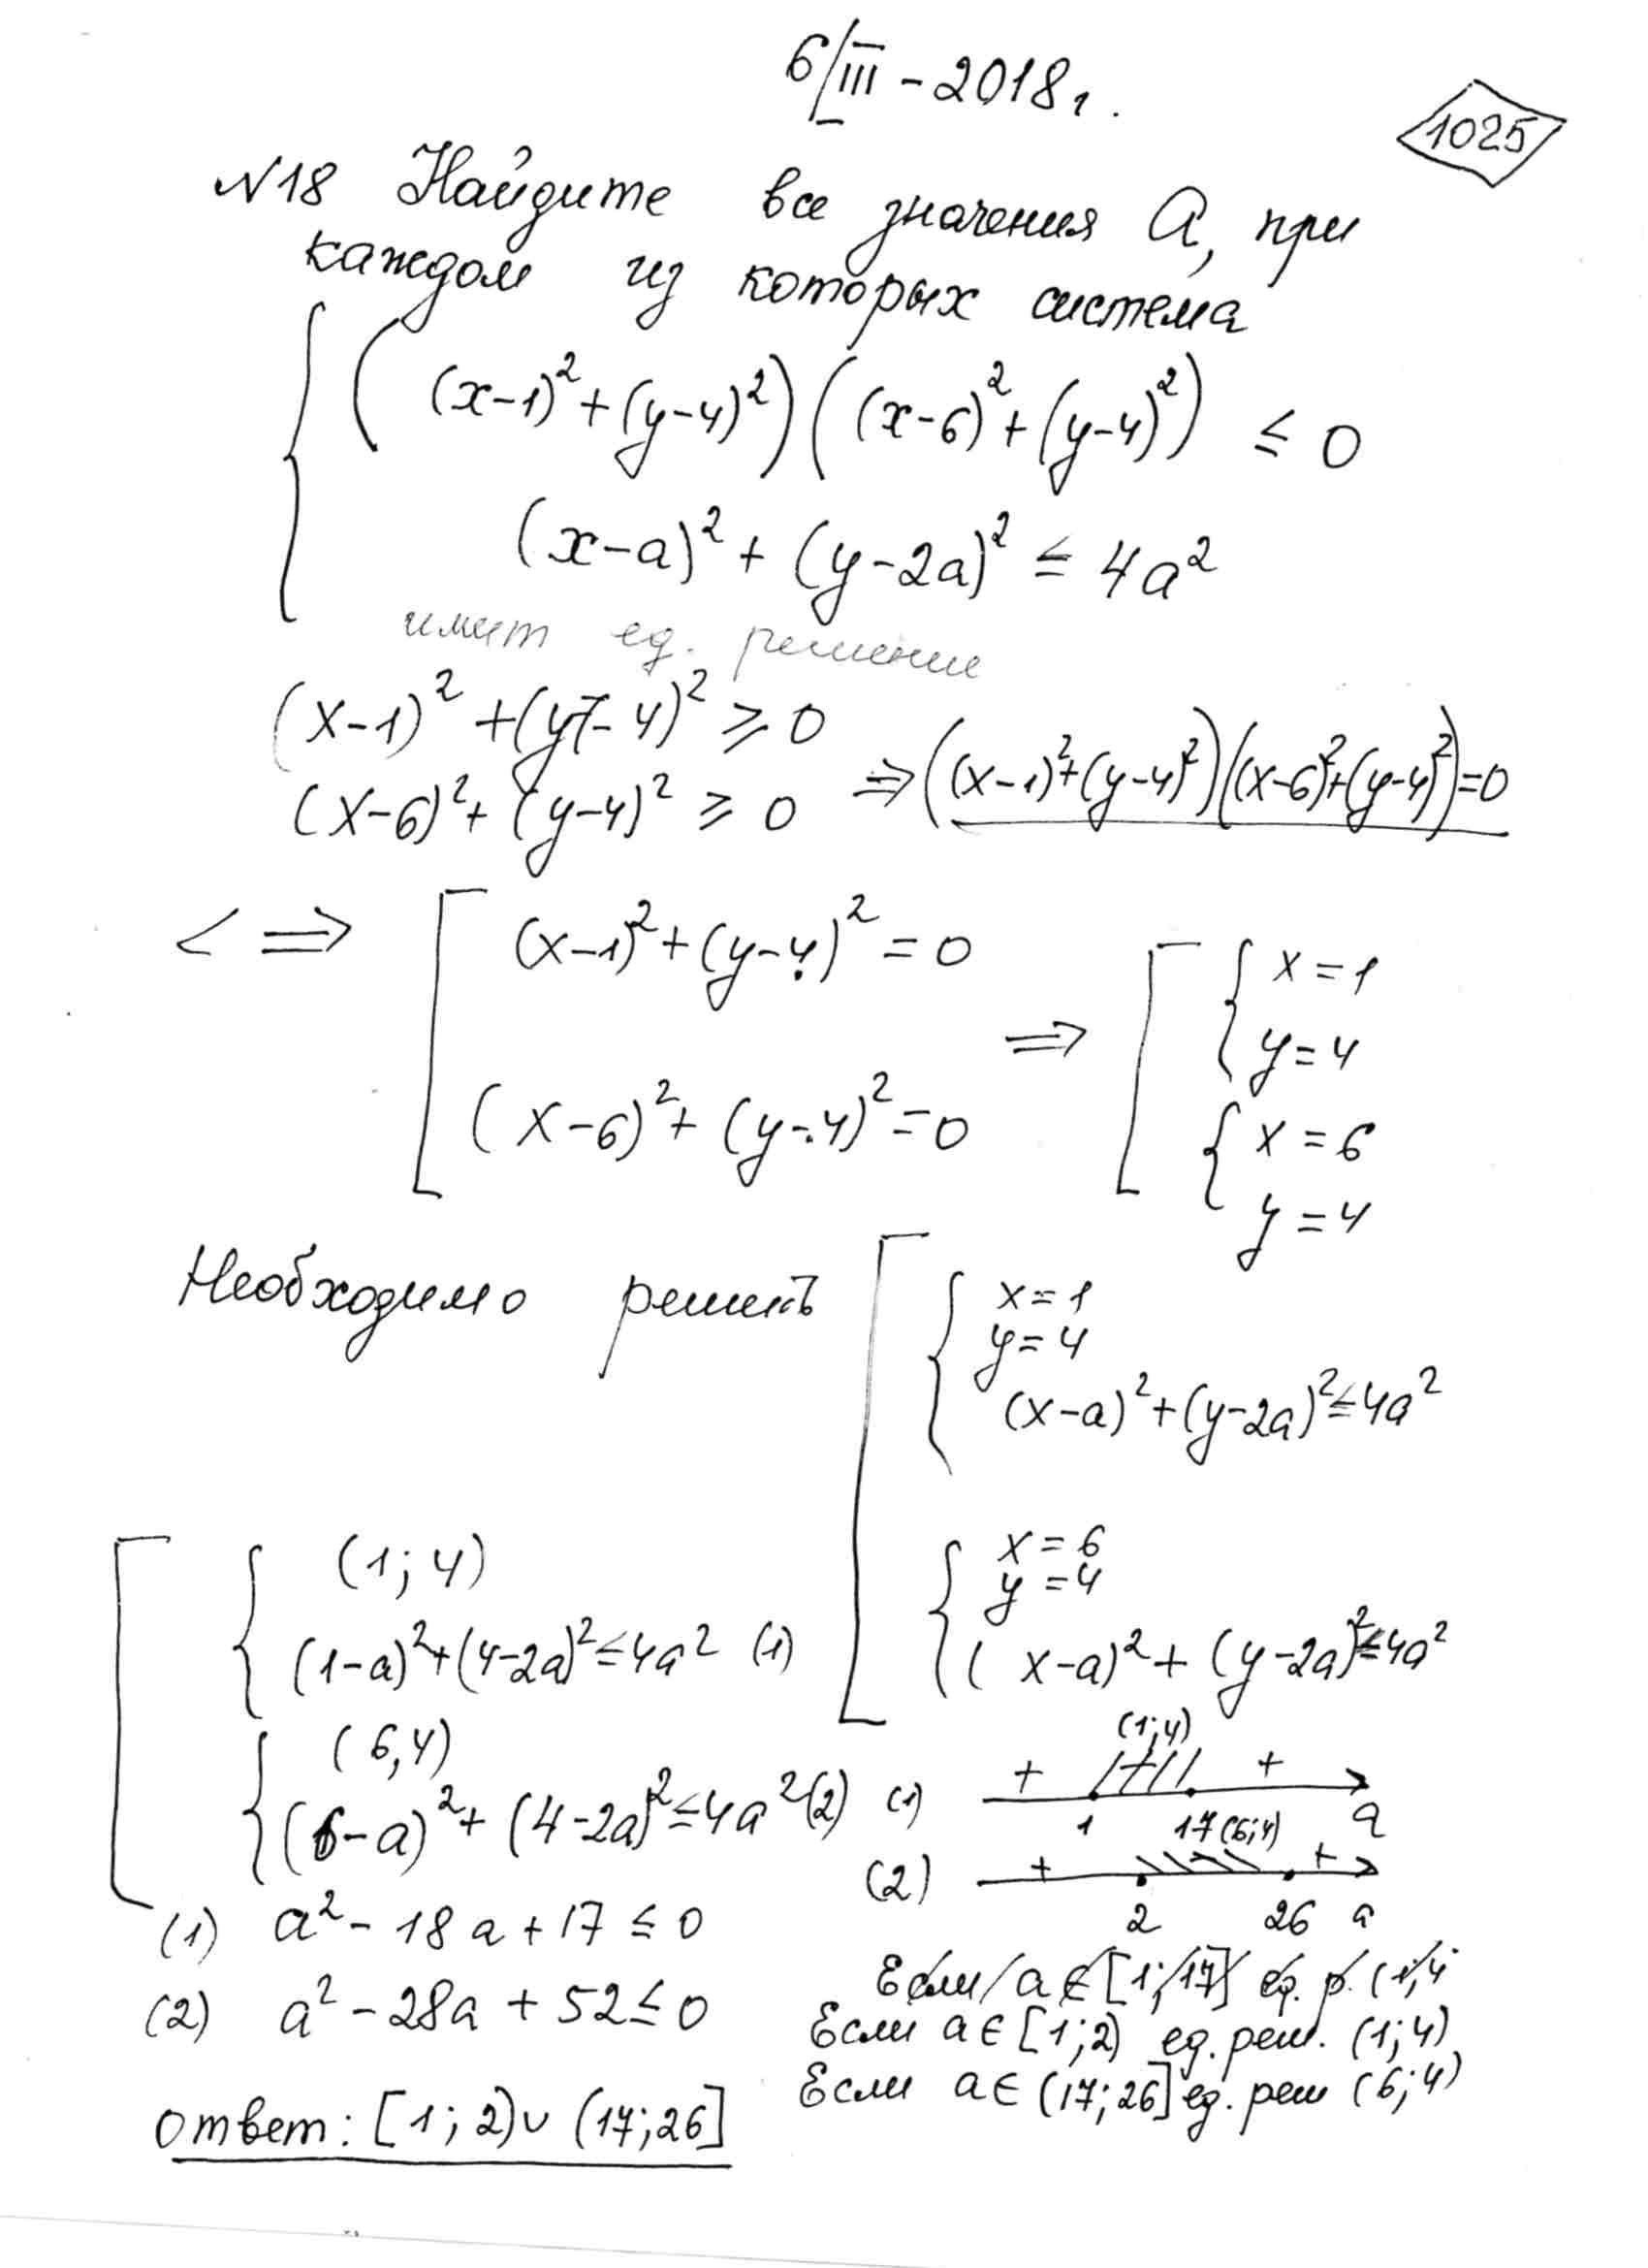 6/III - 2018г.
1025
№18 Найдите все значения а, при
каждом из которых система
{ ((x-1)²+(y-4)²)((x-6)²+(y-4)²) ≤ 0
(x-a)²+(y-2a)² ≤ 4a²
имеет ед. решение
(x-1)²+(y-4)² ≥ 0
(x-6)²+(y-4)² ≥ 0 ⇒ ((x-1)²+(y-4)²)((x-6)²+(y-4)²)=0
<=> [ (x-1)²+(y-4)²=0
(x-6)²+(y-4)²=0
⇒ [ { x=1
y=4
{ x=6
y=4
Необходимо решить [ { x=1
y=4
(x-a)²+(y-2a)²≤4a²
{ x=6
y=4
(x-a)²+(y-2a)²≤4a²
[ { (1;4)
(1-a)²+(4-2a)²≤4a² (1)
{ (6,4)
(6-a)²+(4-2a)²≤4a² (2)
(1) a²-18a+17≤0
(2) a²-28a+52≤0
(1) + (1;4) +
1 17 a
(2) + (6;4) +
2 26 a
Если a∈[1;17] ед. р. (1;4
Если a∈[1;2) ед. реш. (1;4)
Если a∈(17;26] ед. реш (6;4)
Ответ: [1;2)∪(17;26]